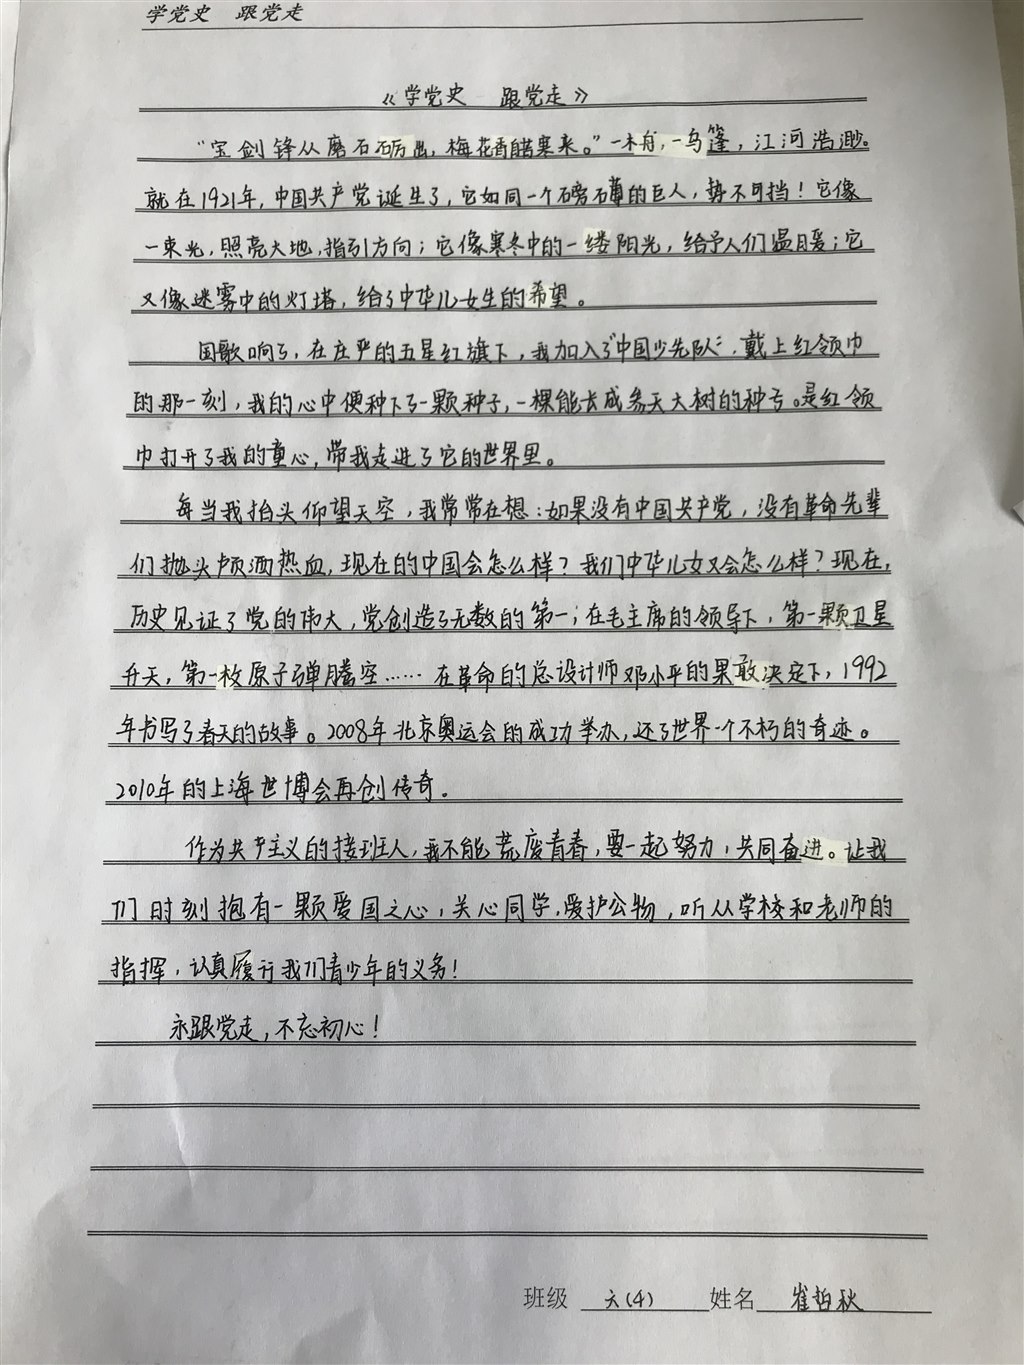 学党史 跟党走
《学党史 跟党走》
“宝剑锋从磨石砺出，梅花香腊寒来。”一木舟，一乌篷，江河浩渺。
就在1921年，中国共产党诞生了，它如同一个磅礴的巨人，势不可挡！它像
一束光，照亮大地，指引方向；它像寒冬中的一缕阳光，给予人们温暖；它
又像迷雾中的灯塔，给了中华儿女生的希望。
国歌响了，在庄严的五星红旗下，我加入了“中国少先队”，戴上红领巾
的那一刻，我的心中便种下了一颗种子，一棵能长成参天大树的种亏。是红领
巾打开了我的童心，带我走进了它的世界里。
每当我抬头仰望天空，我常常在想：如果没有中国共产党，没有革命先辈
们抛头颅洒热血，现在的中国会怎么样？我们中华儿女又会怎么样？现在，
历史见证了党的伟大，党创造了无数的第一；在毛主席的领导下，第一颗卫星
升天，第一枚原子弹腾空……在革命的总设计师邓小平的果敢决定下，1992
年书写了春天的故事。2008年北京奥运会的成功举办，还了世界一个不朽的奇迹。
2010年的上海世博会再创传奇。
作为共产主义的接班人，我不能荒废青春，要一起努力，共同奋进。让我
们时刻抱有一颗爱国之心，关心同学，爱护公物，听从学校和老师的
指挥，认真履行我们青少年的义务！
永跟党走，不忘初心！
班级 六(4) 姓名 崔哲秋